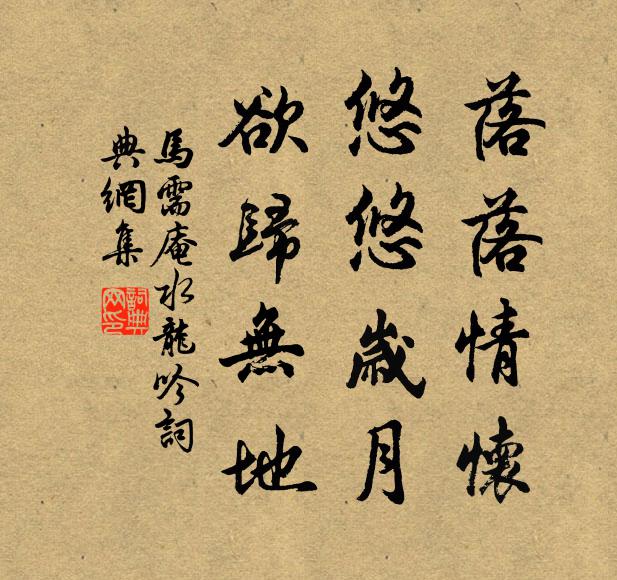 落落情懷
悠悠歲月
欲歸無地
馬需庵水龍吟詞
典網集
詞典
网印